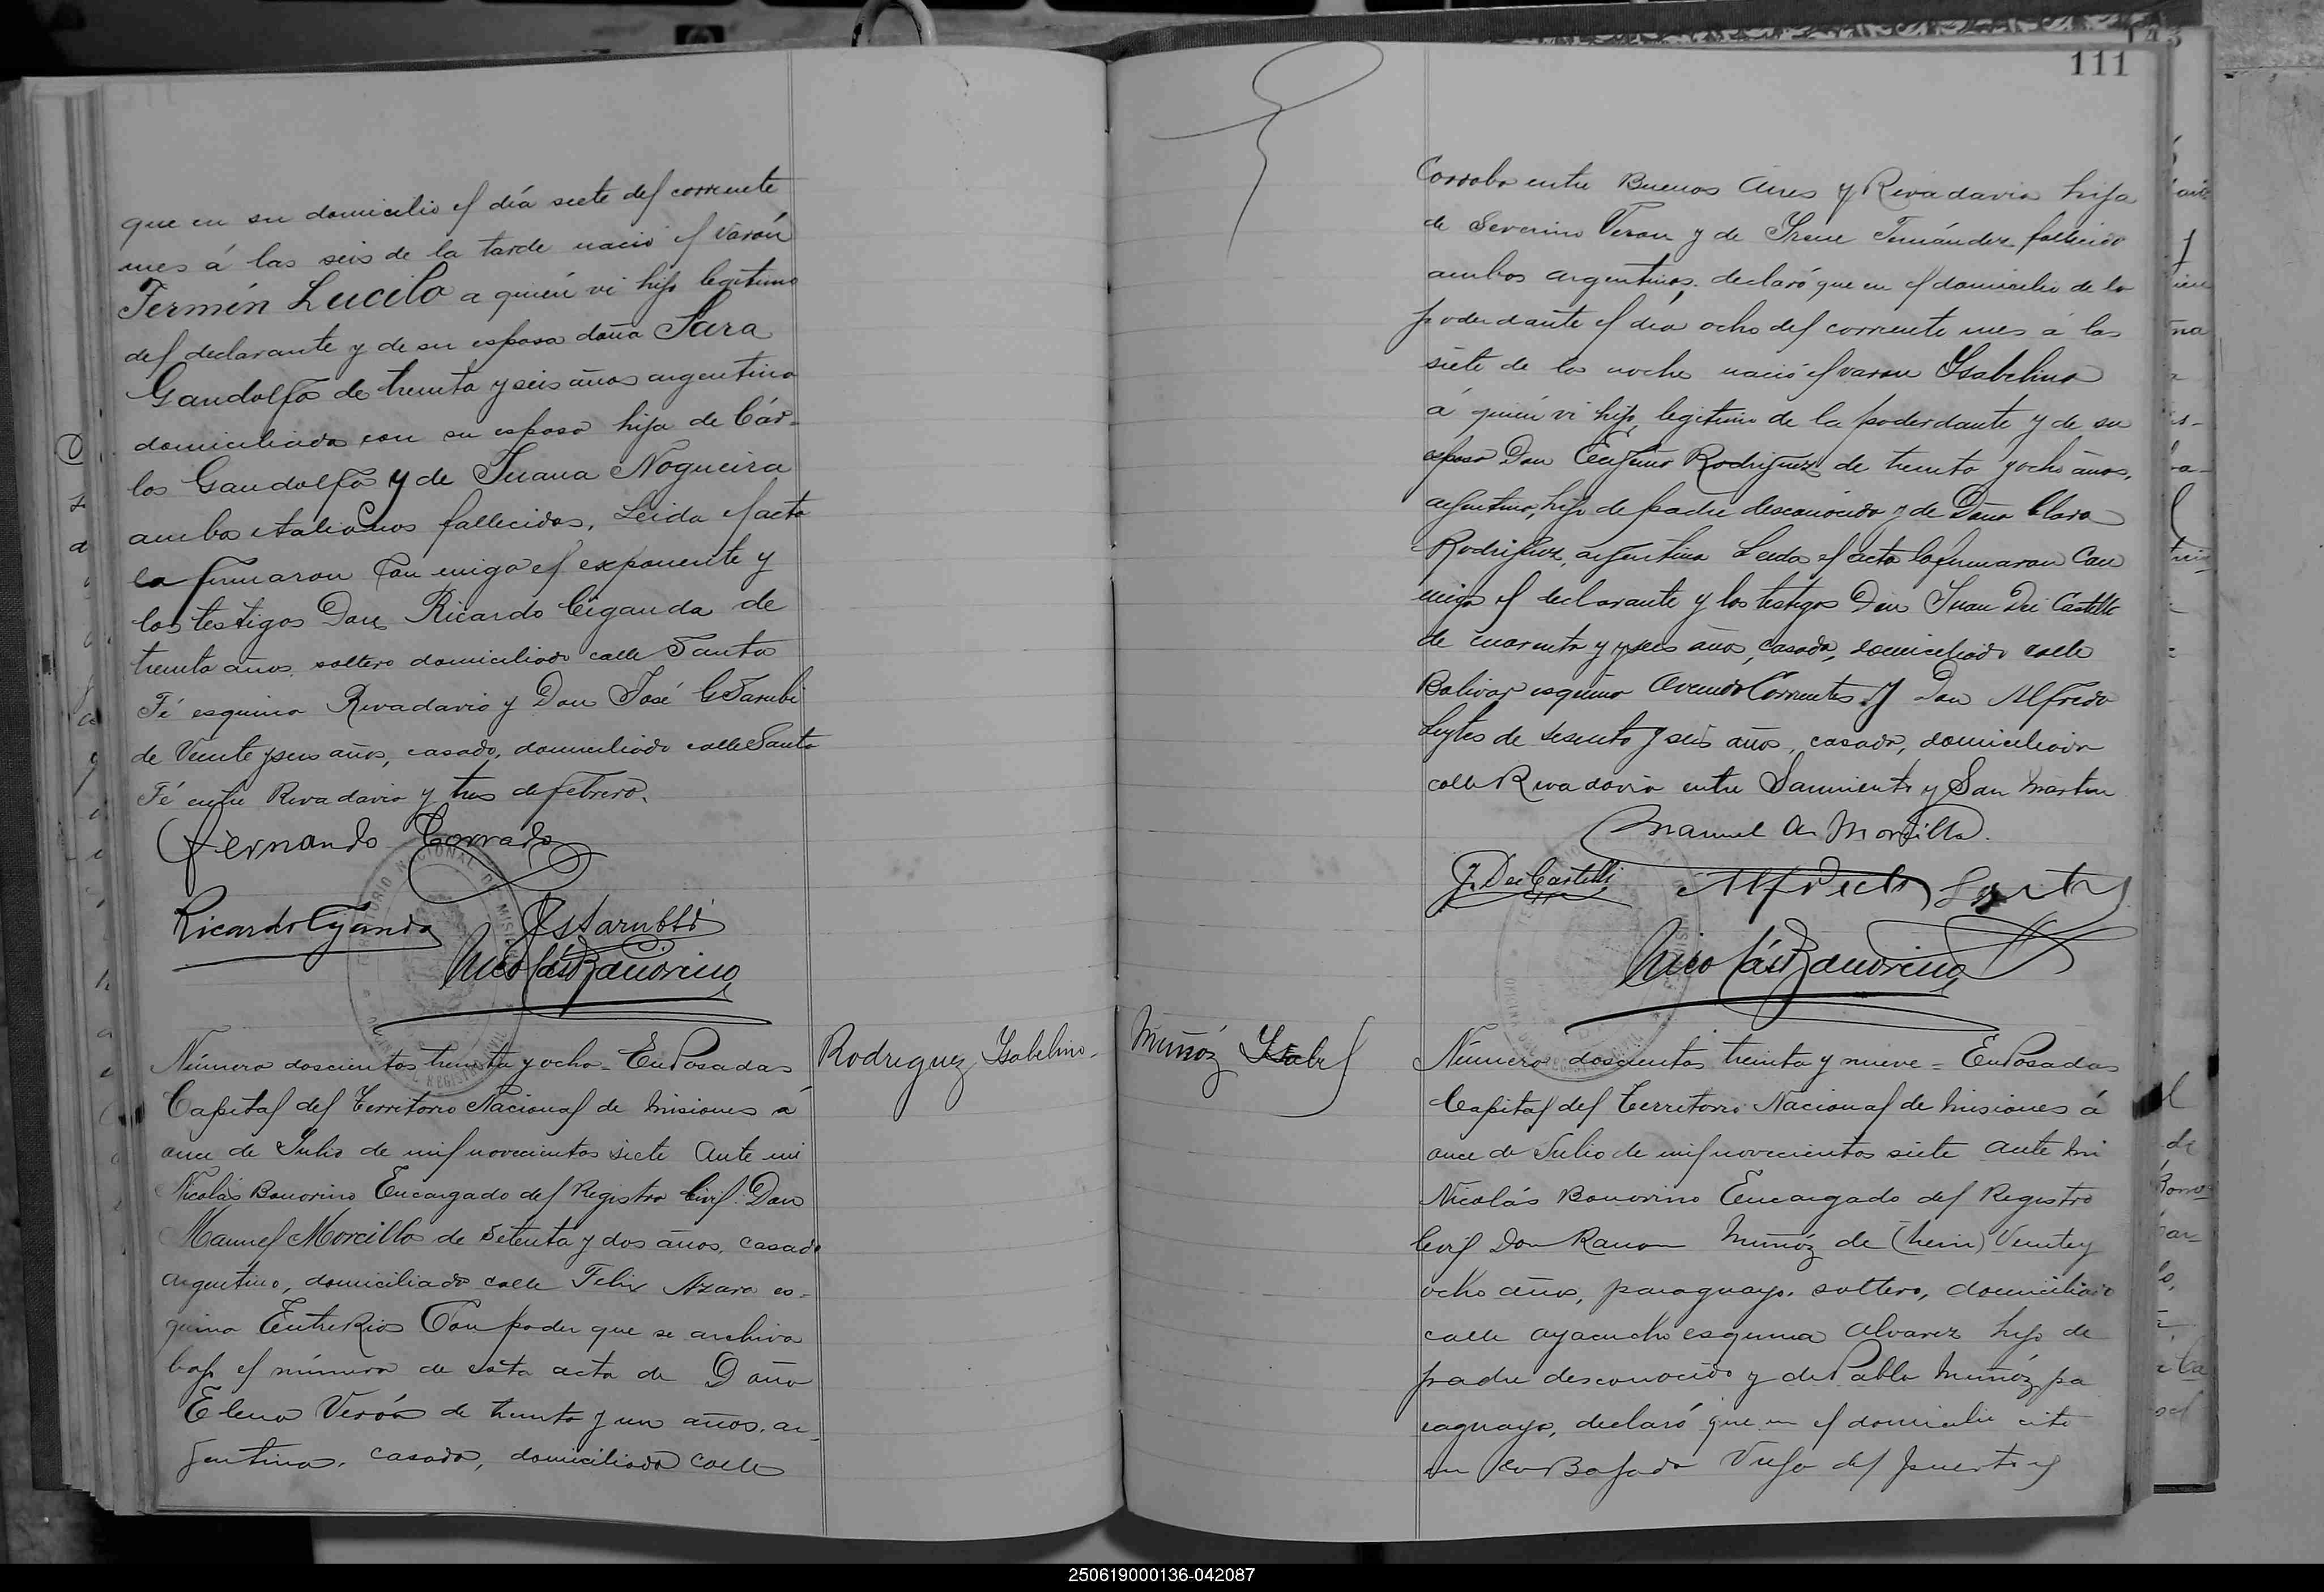 que en su domicilio el día siete del corriente
mes á las seis de la tarde nació el varón
Fermín Lucilo a quién vi hijo legitimo
del declarante y de su esposa doña Sara
Gandolfo de treinta y seis años argentina
domiciliada con su esposo hija de Cár-
los Gandolfo y de Juana Nogueira
ambos italianos fallecidos, Leida el acta
la firmaron con migo el exponente y
los testigos Don Ricardo Ciganda de
treinta años, soltero domiciliado calle Santa
Fé esquina Rivadavia y Don José G Sarubi
de Veinte y seis años, casado, domiciliado calle Santa
Fé entre Rivadavia y tres de febrero.
Fernando Corrado
Ricardo Ciganda
Nicolás Bonorino
Número doscientos treinta y ocho = En Posadas
Capital del Territorio Nacional de Misiones á
once de Julio de mil novecientos siete Ante mi
Nicolás Bonorino Encargado del Registro Civil: Don
Manuel Morcillo de setenta y dos años, casado
argentino, domiciliado calle Felix Azara es-
quina Entre Rios Con poder que se archiva
bajo el número de esta acta de Doña
Elena Verón de treinta y un años, ar-
gentina, casada, domiciliada calle
Rodriguez Ysabelino-
111
Cordoba entre Buenos Aires y Rivadavia hija
de Severino Veron y de Irene Fernández fallecido
ambos argentinos, declaró que en el domicilio de la
poderdante el día ocho del corriente mes á las
siete de la noche nació el varon Ysabelino
á quién vi hijo legitimo de la poderdante y de su
esposo Don Rodriguez de treinta y ocho años,
argentino, hijo de padre desconocido y de Doña Clara
Rodriguez, argentina Leida el acta la firmaron con
migo el declarante y los testigos Don Juan Dei Castelli
de cuarenta y seis años, casado, domiciliado calle
Bolivar esquina Avenida Corrientes y Don Alfredo
de sesenta y seis años, casado, domiciliado
calle Rivadavia entre Sarmiento y San Martin
Manuel A. Morcillo.
J. Dei Castelli
Nicolás Bonorino
Muñóz Ysabel
Número doscientos treinta y nueve = En Posadas
Capital del Territorio Nacional de Misiones á
once de Julio de mil novecientos siete ante mi
Nicolás Bonorino Encargado del Registro
Civil Don Ramon Muñóz de (trein) Veinte y
ocho años, paraguayo, soltero, domiciliado
calle Ayacucho esquina Alvarez hijo de
padre desconocido y de Pabla Muñóz pa
raguaya, declaró que en el domicilio cito
en la Bajada Vieja del puerto el
250619000136-042087